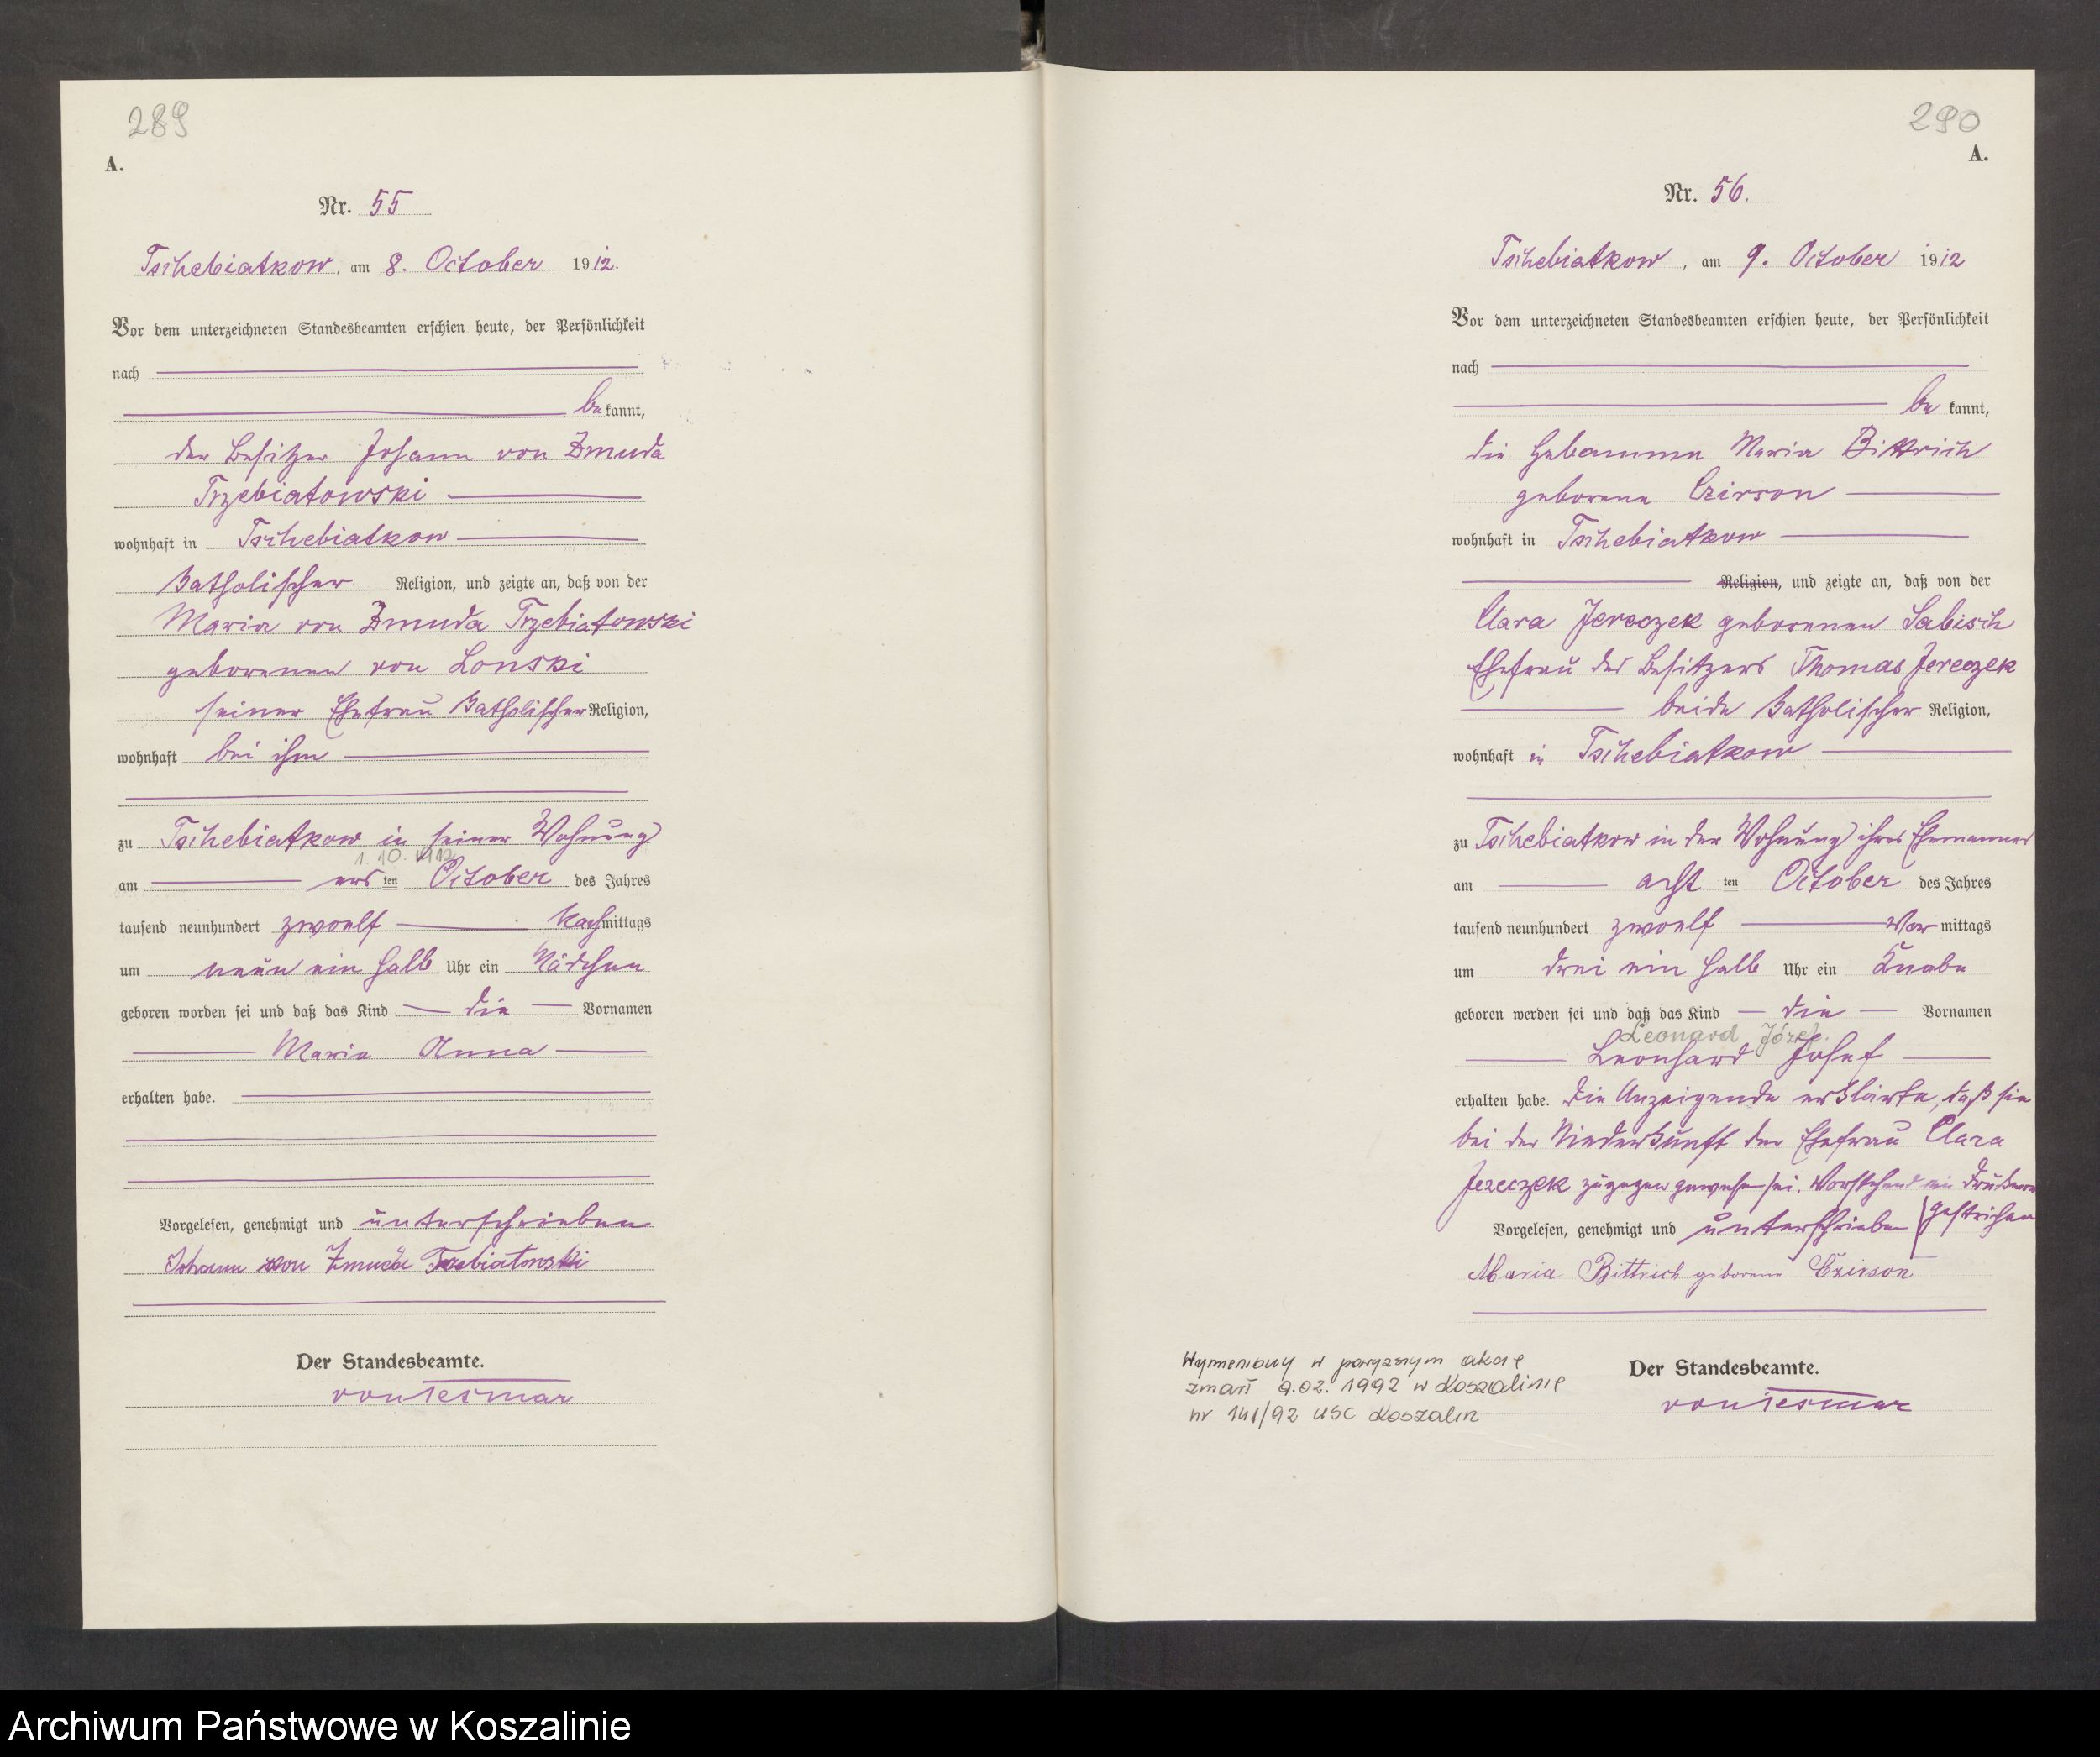 289
A.
Nr. 55
Tschebiatkow, am 8. October 1912.
Vor dem unterzeichneten Standesbeamten erschien heute, der Persönlichkeit
nach
bekannt,
der Besitzer Johann von Zmuda
Trzebiatowski
wohnhaft in Tschebiatkow
Katholischer Religion, und zeigte an, daß von der
Maria von Zmuda Trzebiatowski
geborenen von Lonski
seiner Ehefrau Katholischer Religion,
wohnhaft bei ihm
zu Tschebiatkow in seiner Wohnung
1. 10. 1912
am ersten October des Jahres
tausend neunhundert zwoelf Nachmittags
um neun ein halb Uhr ein Mädchen
geboren worden sei und daß das Kind die Vornamen
Maria Anna
erhalten habe.
Vorgelesen, genehmigt und unterschrieben
Johann von Zmuda Trzebiatowski
Der Standesbeamte.
von Tesmar
290
A.
Nr. 56.
Tschebiatkow, am 9. October 1912
Vor dem unterzeichneten Standesbeamten erschien heute, der Persönlichkeit
nach
bekannt,
die Hebamme Maria Bittrich
geborene Czirson
wohnhaft in Tschebiatkow
Religion, und zeigte an, daß von der
Clara Jereczek geborenen Sabisch
Ehefrau des Besitzers Thomas Jereczek
beide Katholischer Religion,
wohnhaft in Tschebiatkow
zu Tschebiatkow in der Wohnung ihres Ehemannes
am achtten October des Jahres
tausend neunhundert zwoelf Vormittags
um drei ein halb Uhr ein Knabe
geboren werden sei und daß das Kind die Vornamen
Leonard Józef
Leonhard Josef
erhalten habe. Die Anzeigende erklärte, daß sie
bei der Niederkunft der Ehefrau Clara
Jereczek zugegen gewesen sei. Vorstehend ein Druckwort
gestrichen
Vorgelesen, genehmigt und unterschrieben
Maria Bittrich geborene Czirson
Wymieniony w powyższym akcie
zmarł 9.02.1992 w Koszalinie
nr 141/92 USC Koszalin
Der Standesbeamte.
von Tesmar
Archiwum Państwowe w Koszalinie